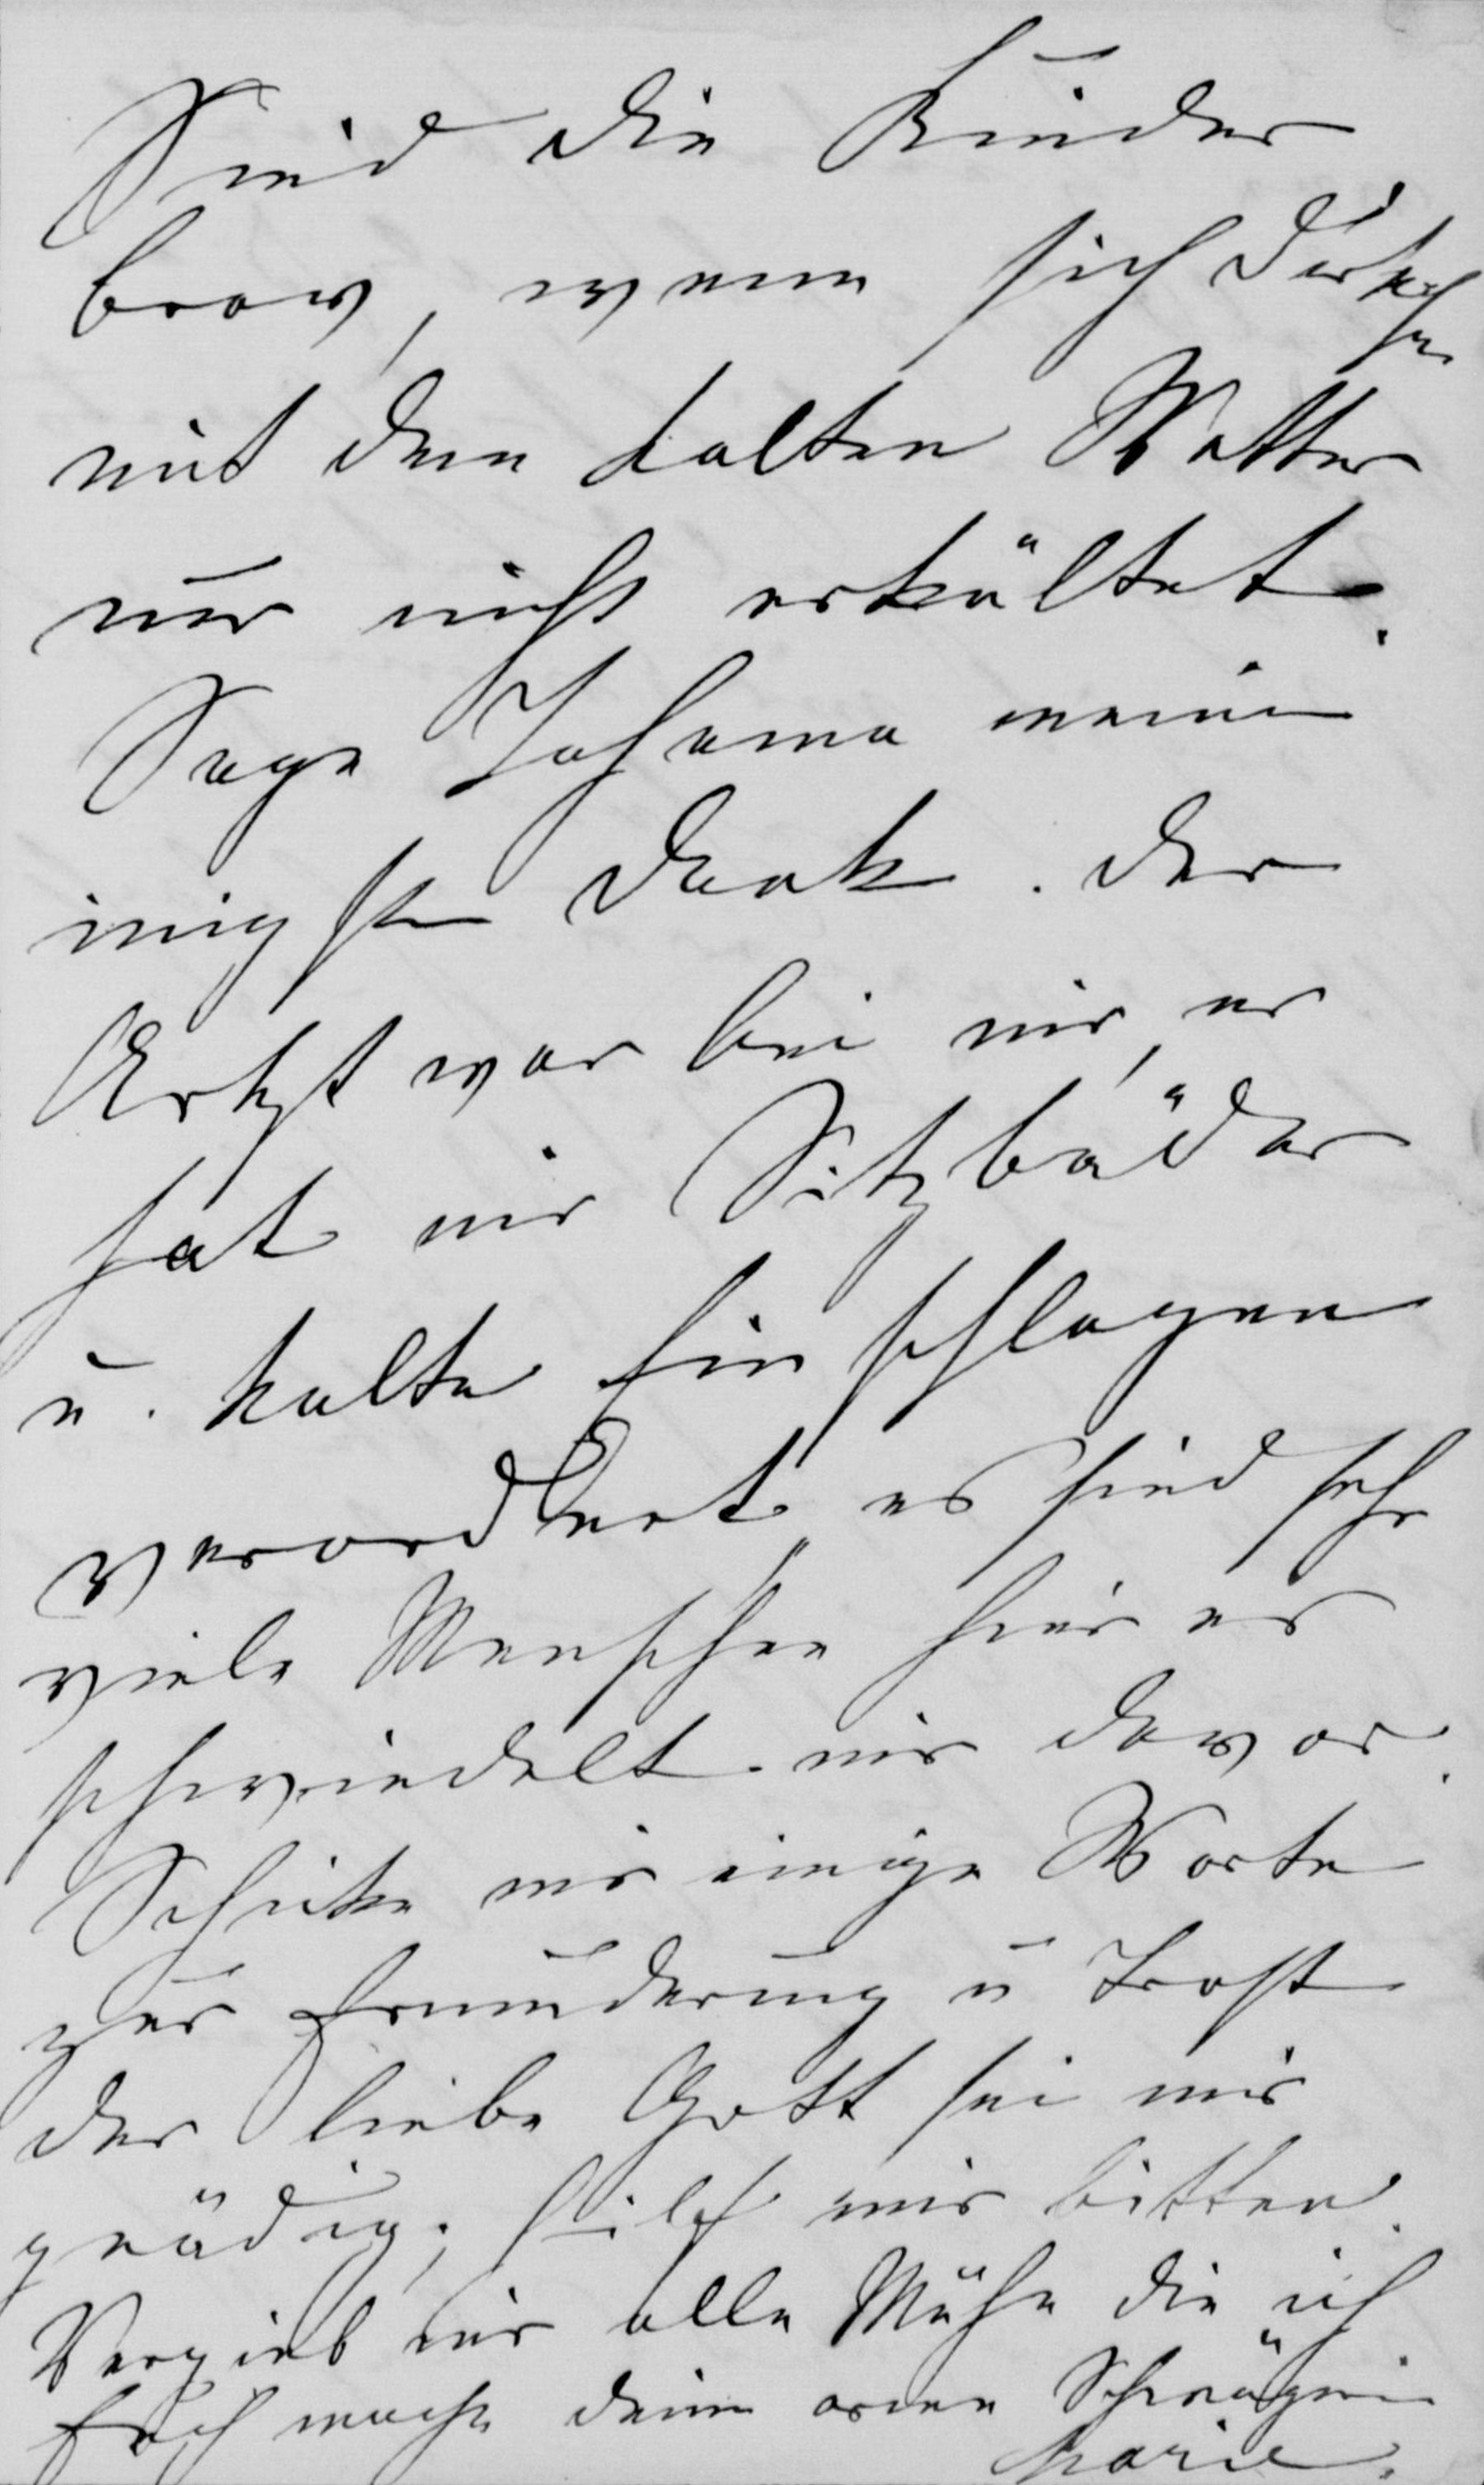 Sind die Kinder
brav, wenn sich Dortchen
mit dem kalten Wetter
nur nicht erkältet.
Sage Johanna meinen
innigsten Dank. Der
Artzt war bei mir, er
hat mir Sitzbäder
u. kalte Einschlagen
verordnert, es sind sehr
viele Menschen hier es
schwiedelt mir davor.
Schicke mir einige Worte
zur Ermunderung u Trost
der liebe Gott sei mir
gnädig; hilf mir bitten.
Vergieb mir alle Mühe die ich
Euch mache deine arme Schwägerin
Marie.